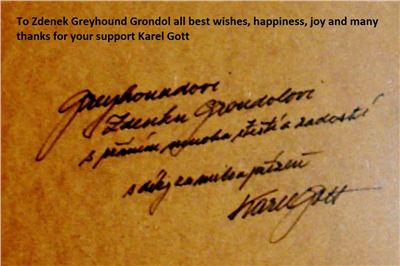 To Zdenek Greyhound Grondol all best wishes, happiness, joy and many
thanks for your support Karel Gott
Greyhoundovi
Zdenku Grondolovi
s přáním mnoha štěstí a radostí
s díky za milou přízeň
Karel Gott